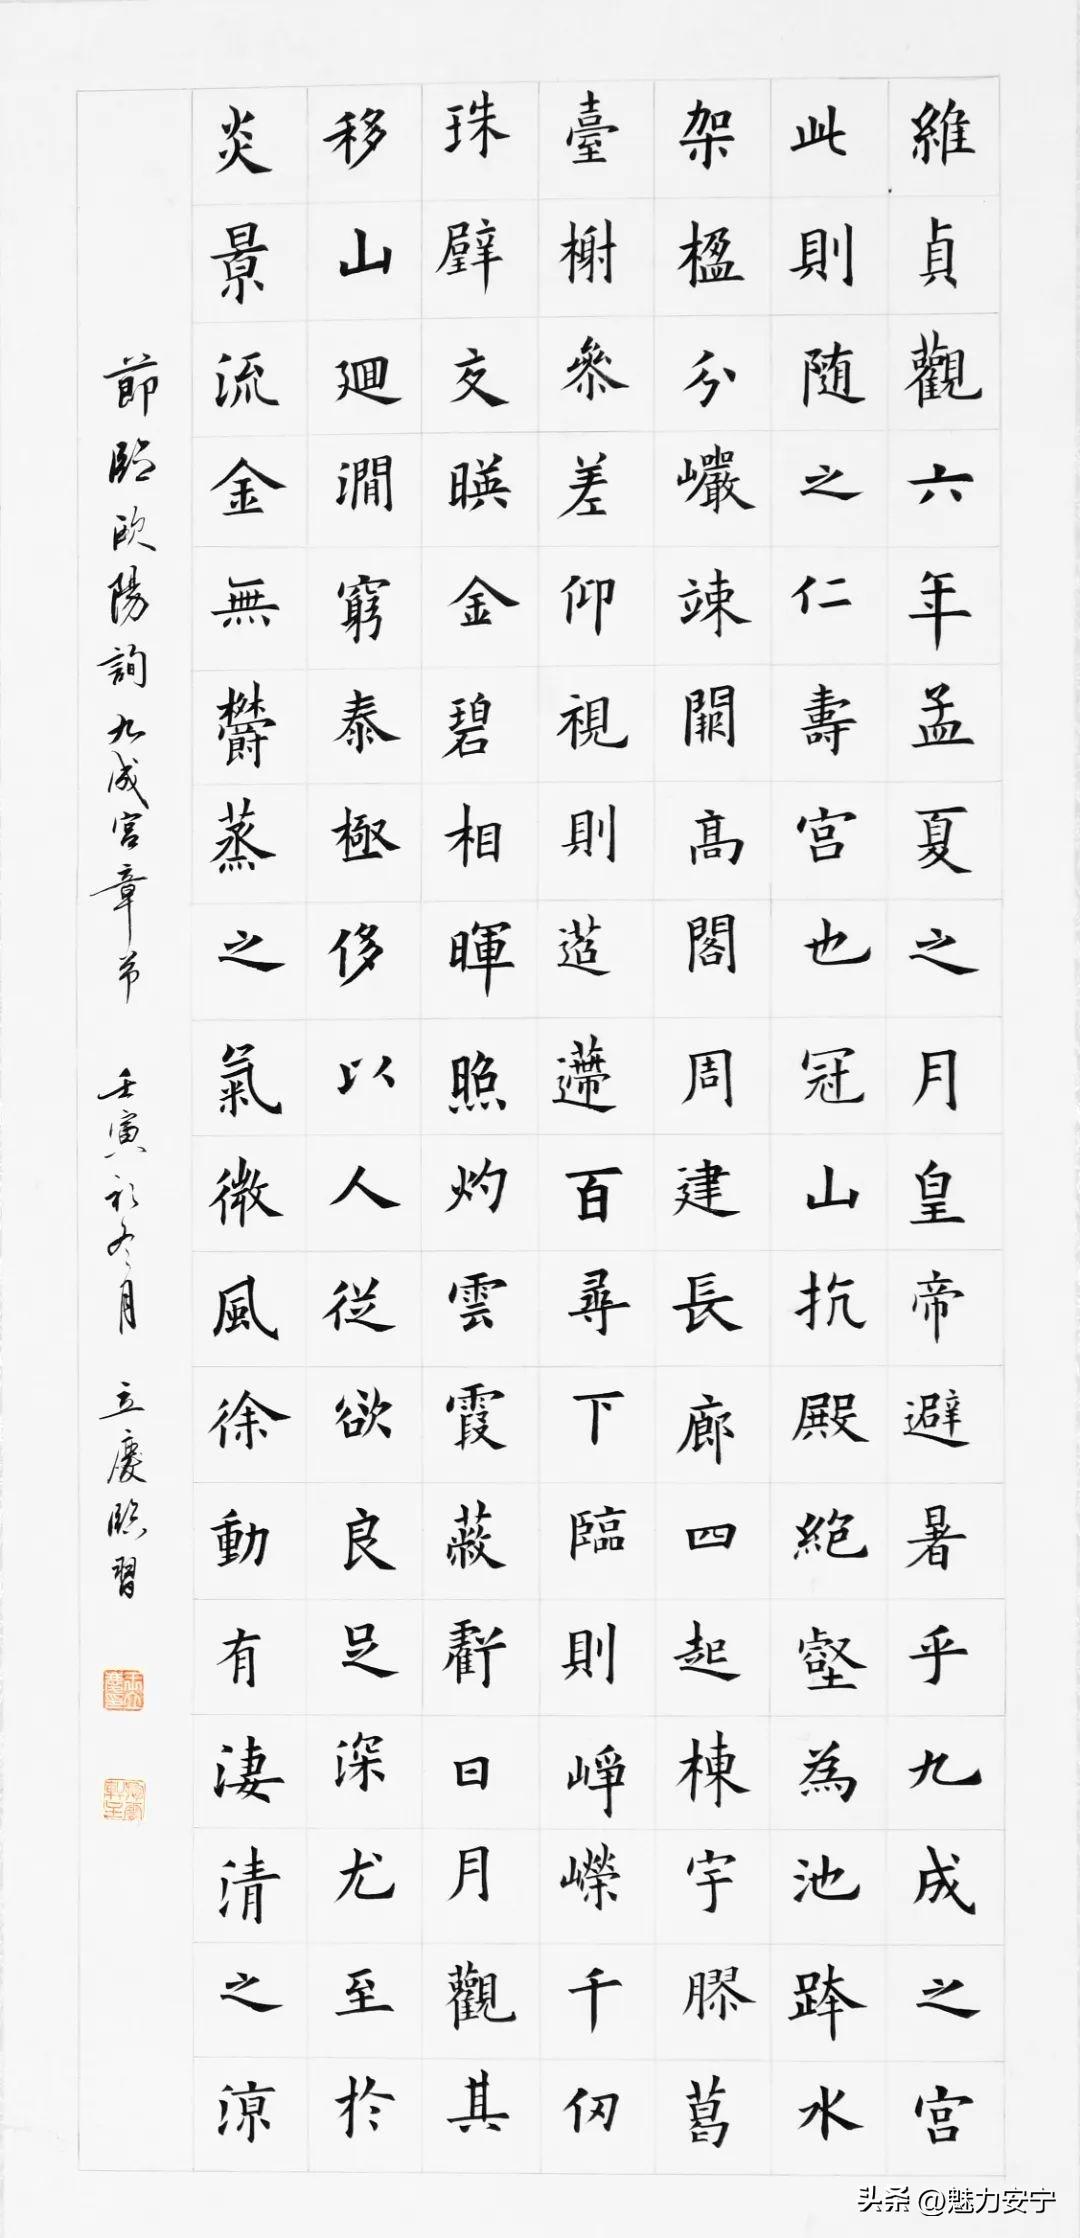 維貞觀六年孟夏之月皇帝避暑乎九成之宮
此則随之仁壽宮也冠山抗殿絶壑為池跨水
架楹分巖竦闕高閣周建長廊四起棟宇膠葛
臺榭參差仰視則迢遰百尋下臨則崢嶸千仞
珠璧交暎金碧相暉照灼雲霞蔽虧日月觀其
移山廻澗窮泰極侈以人從欲良足深尤至於
炎景流金無欝蒸之氣微風徐動有淒清之涼
節臨欧陽詢九成宮章節 壬寅初冬月 立慶臨習
头条 @魅力安宁